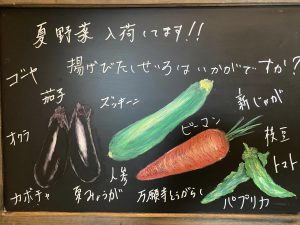 夏野菜入荷してます!!
揚げびたしせいろはいかがですか?
ゴーヤ
茄子
ズッキーニ
新じゃが
オクラ
ピーマン
枝豆
トマト
人参
カボチャ
夏みょうが
万願寺とうがらし
パプリカ